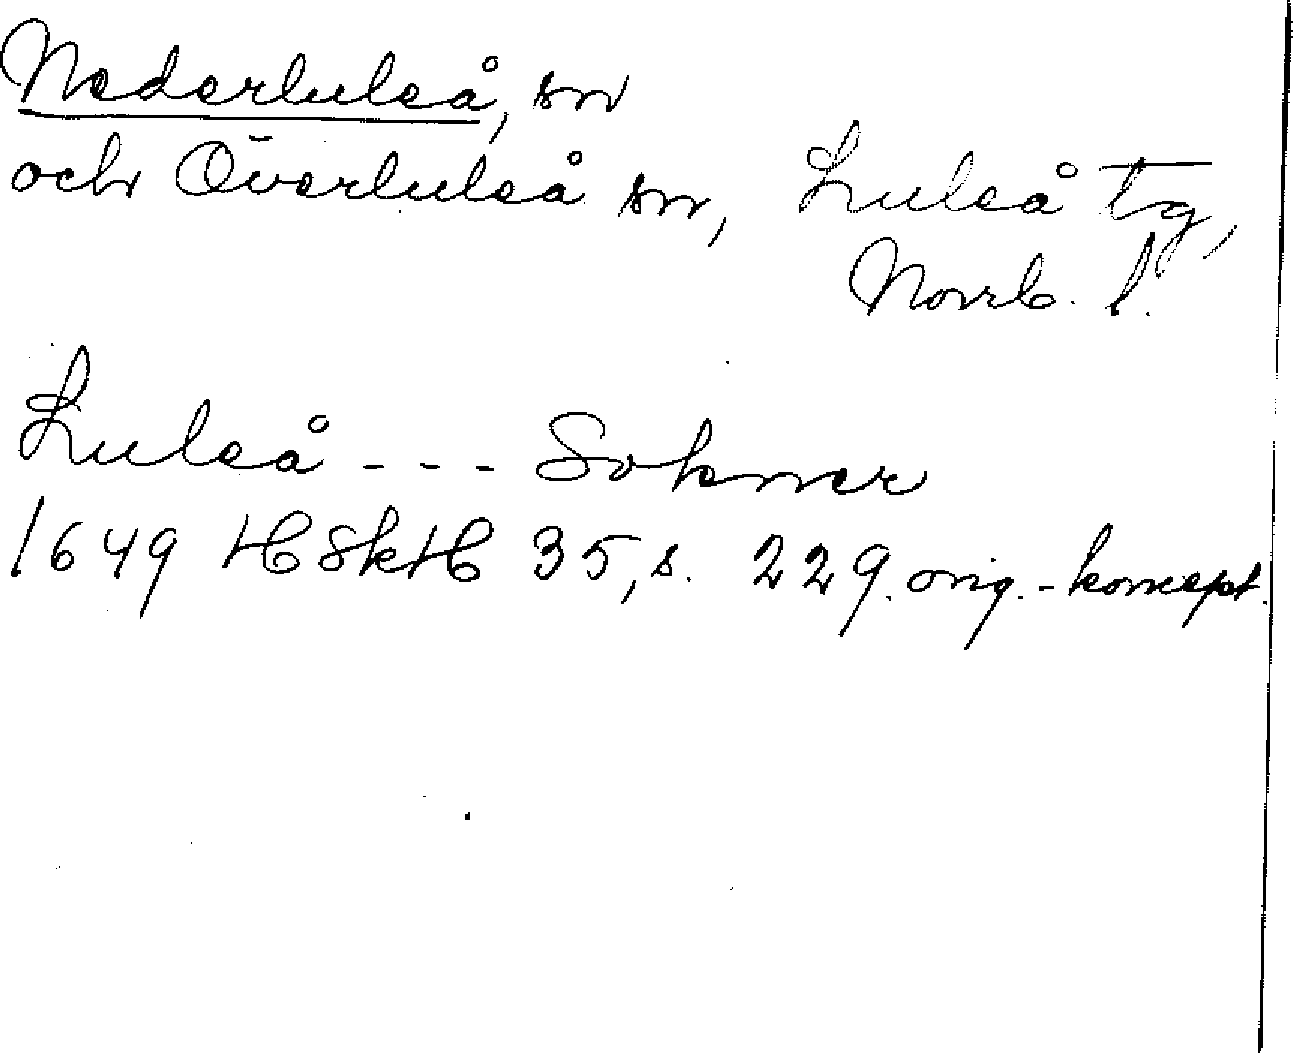 Nederluleå, sn
och Överluleå sn, Luleå tg,
Norrb. l.
Luleå - - - Sokner
1649 HSkH 35, s. 229. orig.-koncept.